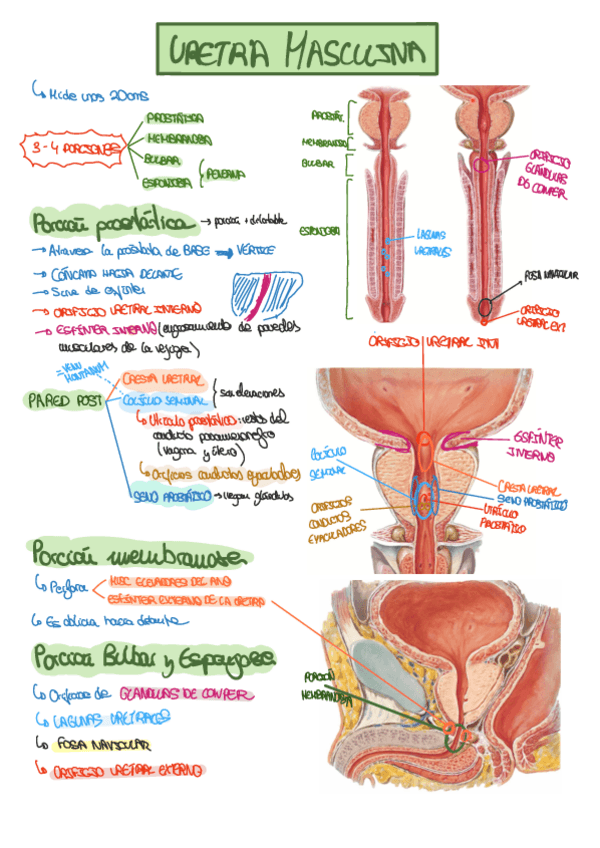 URETRA MASCULINA
↳ Mide unos 20cms
3-4 PORCIONES
PROSTÁTICA
MEMBRANOSA
BULBAR
ESPONJOSA
PENEANA
Porción prostática → porción + dilatable
→ Atraviesa la próstata de BASE → VÉRTICE
→ CÓNCAVA HACIA DELANTE
→ ORIFICIO URETRAL INTERNO
→ ESFÍNTER INTERNO (engrosamiento de paredes
musculares de la vejiga)
PARED POST
CRESTA URETRAL
COLÍCULO SEMINAL
son elevaciones
↳ Utrículo prostático: restos del
conducto paramesonéfrico
(vagina y útero)
↳ Orificios conductos eyaculadores
SENO PROSTÁTICO
Porción membranosa
↳ Perfora
MUSC ELEVADORES DEL ANO
ESFÍNTER EXTERNO DE LA URETRA
↳ Es oblicua hacia delante
Porción Bulbar y Esponjosa
↳ Orificios de GLÁNDULAS DE COWPER
↳ LAGUNAS URETRALES
↳ FOSA NAVICULAR
↳ ORIFICIO URETRAL EXTERNO
PROSTÁT.
MEMBRANOSA
BULBAR
ESPONJOSA
LAGUNAS
URETRALES
ORIFICIO
GLÁNDULAS
DS COWPER
FOSA NAVICULAR
ORIFICIO
URETRAL EXT
ORIFICIO URETRAL INT
ESFÍNTER
INTERNO
COLÍCULO
SEMINAL
CRESTA URETRAL
SENO PROSTÁTICO
UTRÍCULO
PROSTÁTICO
ORIFICIOS
CONDUCTOS
EYACULADORES
PORCIÓN
MEMBRANOSA